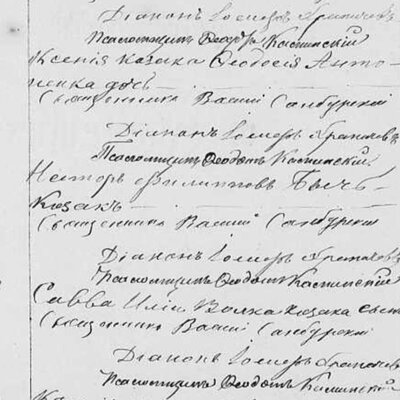 Діаконъ Іосифъ Храпачевъ
Псаломщикъ Ѳеодотъ Каминскій
Ксенія козака Ѳеодосія Анто-
ненка дочь
Священникъ Василій Самбурскій
Діаконъ Іосифъ
Псаломщикъ Ѳеодотъ Каминскій
Несторъ Филипповъ
козакъ
Священникъ Василій Самбурскій
Діаконъ Іосифъ
Псаломщикъ Ѳеодотъ Каминскій
Савва Иліи Волка козака сынъ
Священникъ Василій Самбурскій
Діаконъ Іосифъ
Псаломщикъ Ѳеодотъ Каминскій